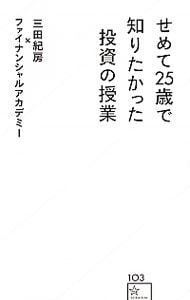 せめて25歳で
知りたかった
投資の授業
三田紀房
×
ファイナンシャルアカデミー
103